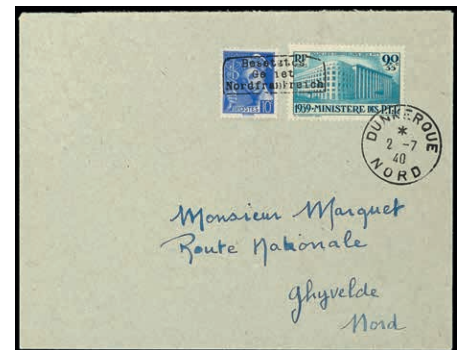 Besetztes
Gebiet
Nordfrankreich
POSTES 10
RF 90
1939-MINISTERE DES P.T.T.
DUNKERQUE
*
2 -7
40
NORD
Monsieur Marquet
Route Nationale
Ghyvelde
Nord